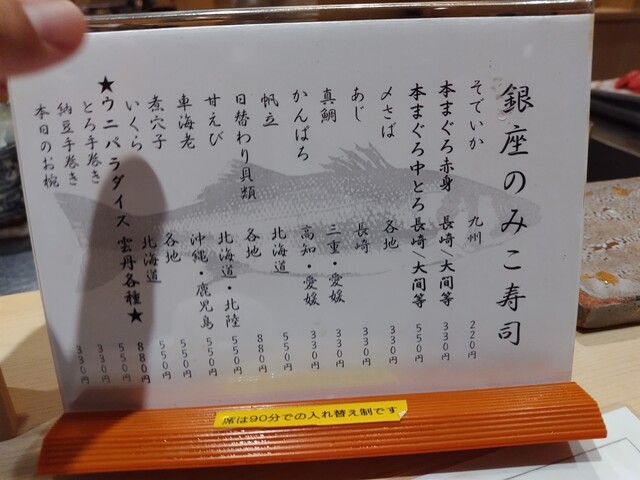 銀座のみこ寿司
そでいか 九州 220円
本まぐろ赤身 長崎/大間等 330円
本まぐろ中とろ 長崎/大間等 550円
〆さば 各地 330円
あじ 長崎 330円
真鯛 三重・愛媛 330円
かんぱち 高知・愛媛 330円
帆立 北海道 550円
日替わり貝類 各地 880円
甘えび 北海道・北陸 550円
車海老 沖縄・鹿児島 550円
煮穴子 各地 550円
いくら 北海道 880円
★ウニパラダイス 雲丹各種★
とろ手巻き 550円
納豆手巻き 330円
本日のお椀 330円
席は90分での入れ替え制です